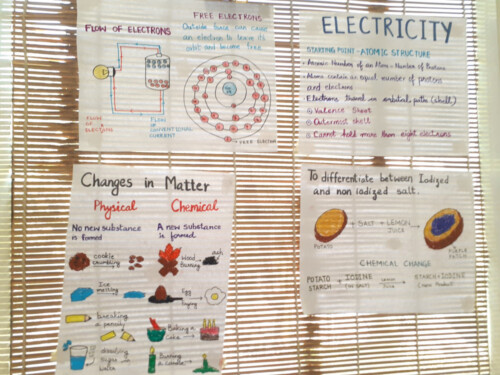 FLOW OF ELECTRONS
FLOW OF ELECTRONS
FLOW OF CONVENTIONAL CURRENT
FREE ELECTRONS
Outside force can cause
an electron to leave its
orbit and become free
FREE ELECTRON
ELECTRICITY
STARTING POINT - ATOMIC STRUCTURE
Atomic Number of an Atom = Number of Protons
Atoms contain an equal number of protons
and electrons
Electrons travel in orbital paths (shell)
Valence
Outermost shell
Cannot hold more than eight electrons
Changes in Matter
Physical
No new substance
is formed
cookie
crumbling
Ice
melting
Breaking
a pencil
Chemical
A new substance
is formed
Wood
burning
ash
Egg
frying
Baking a
cake
Burning
a candle
To differentiate between Iodized
and non iodized salt.
POTATO
SALT
LEMON
JUICE
CHEMICAL CHANGE
POTATO
STARCH
IODINE
(IN SALT)
STARCH-IODINE